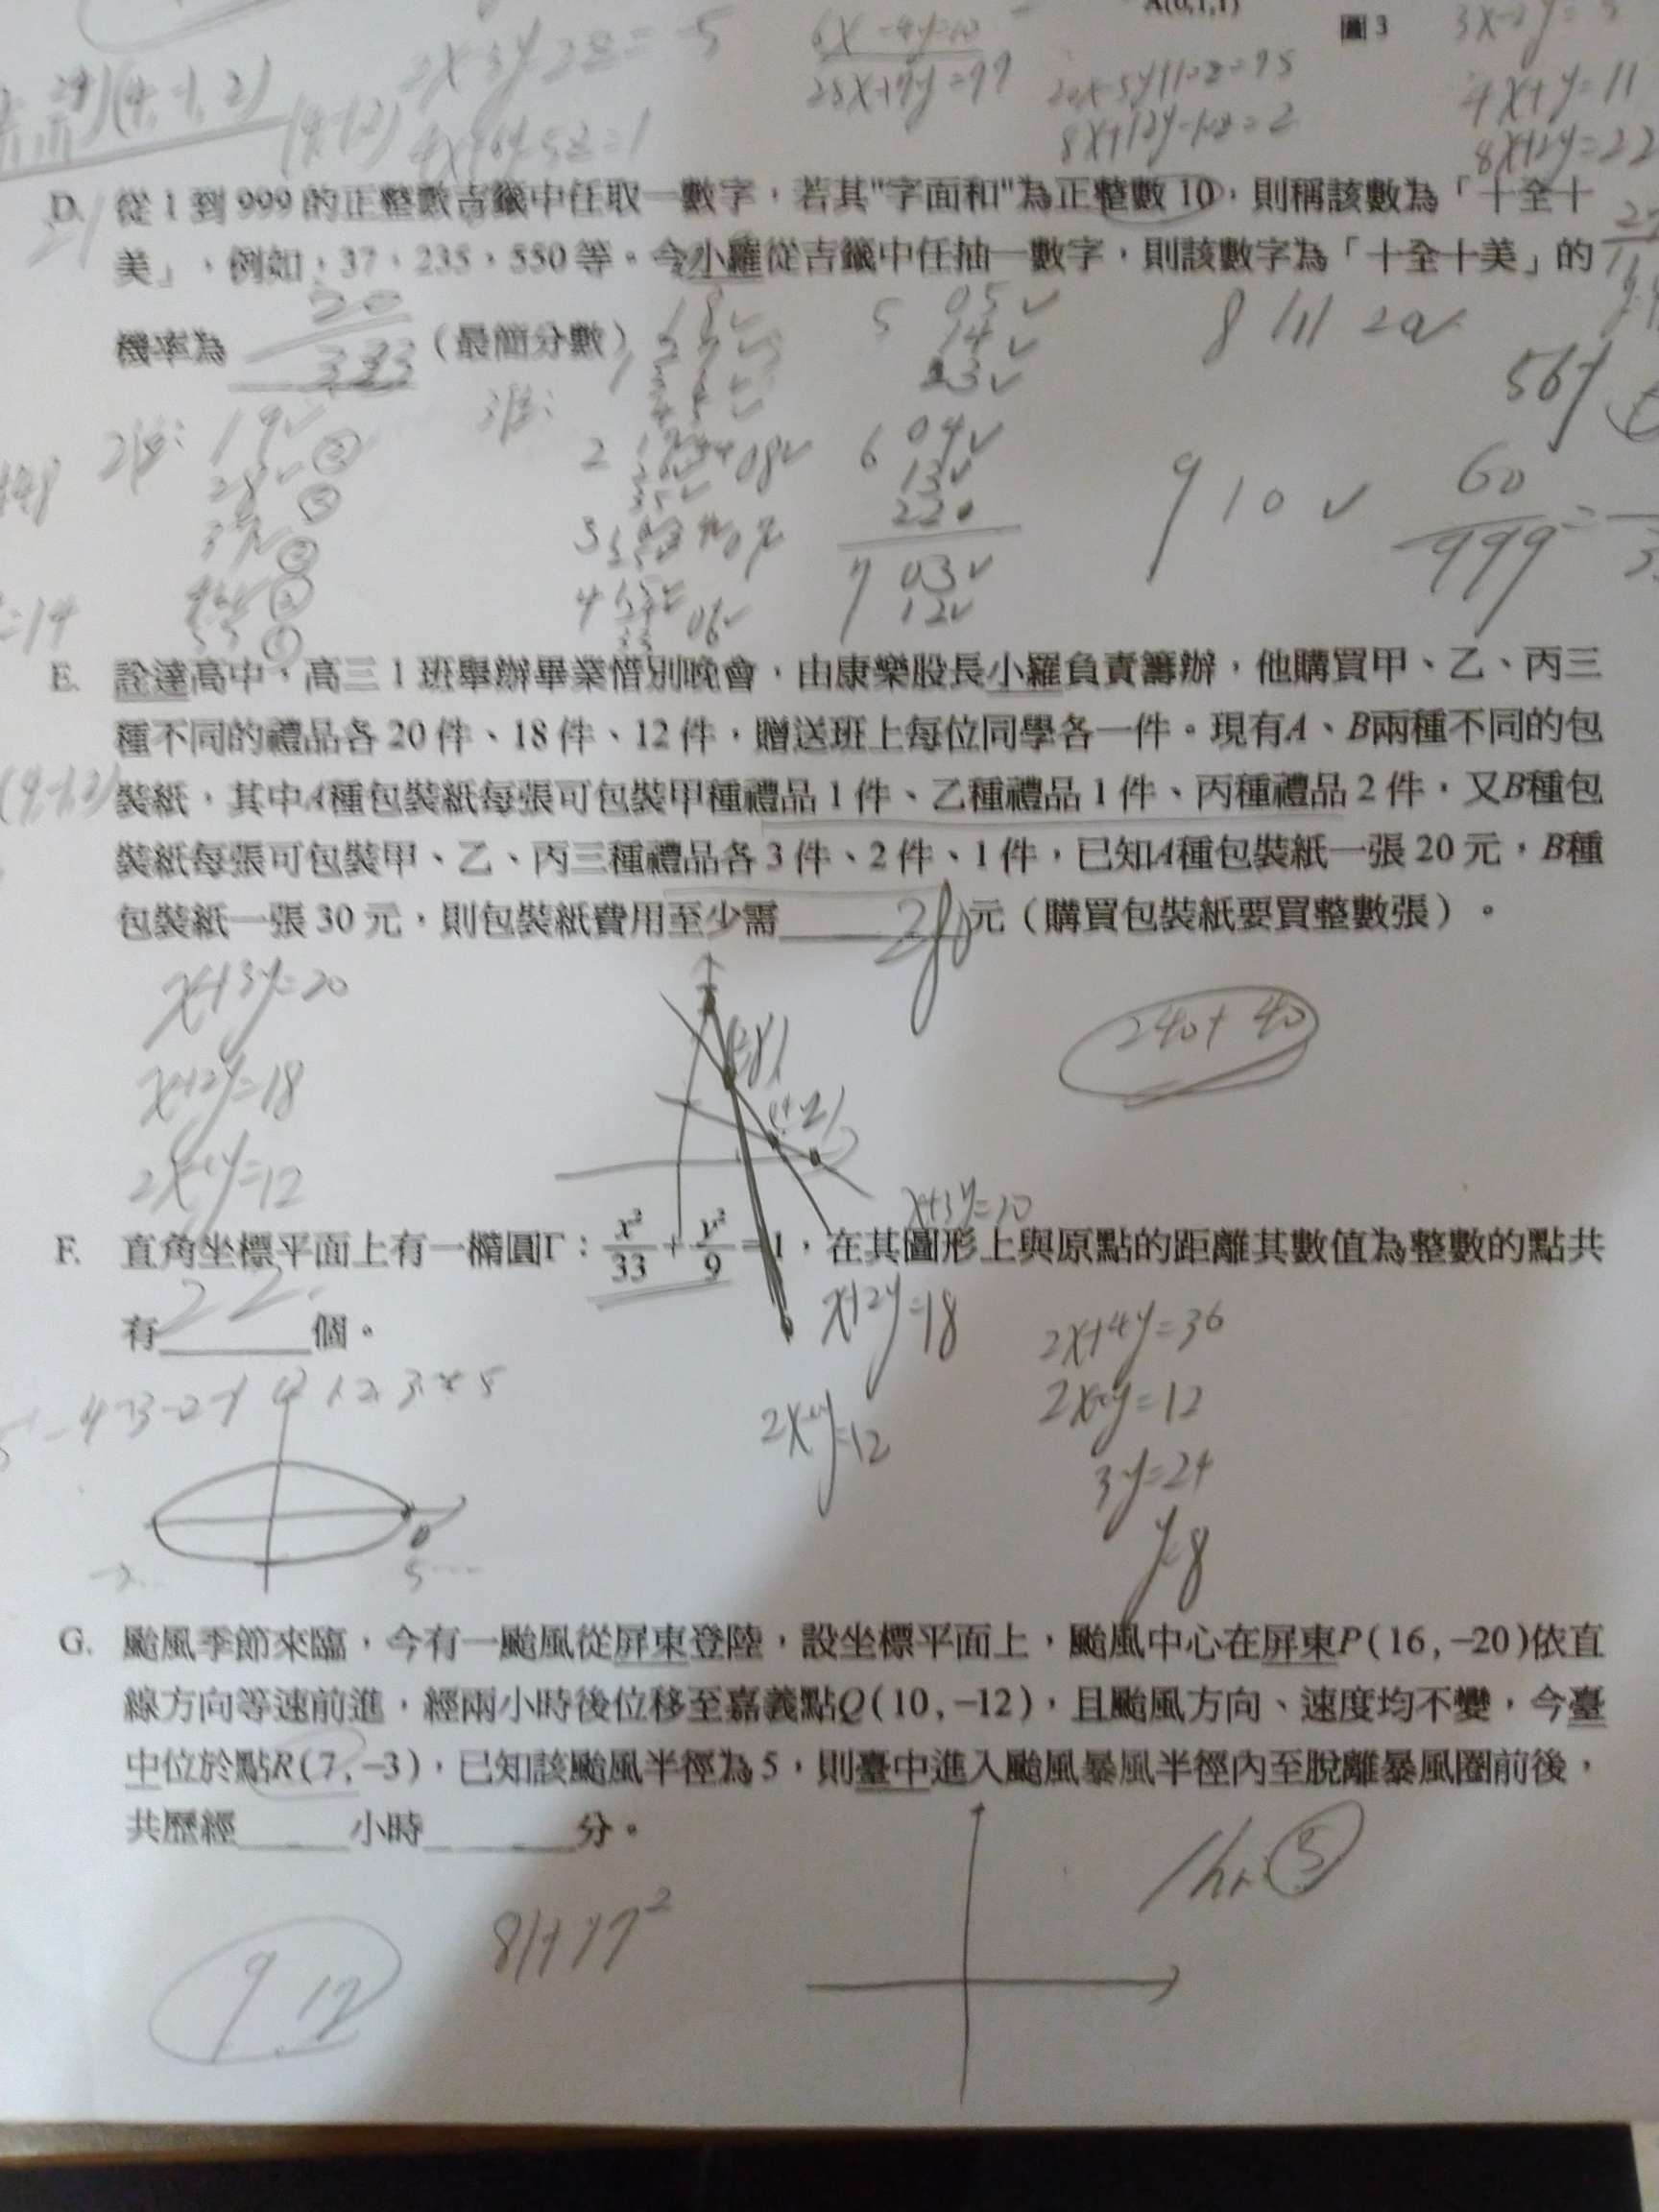 A(0,1,1)
圖 3
3x-2y=5
6x-4y=10
2x-3y-2z=-5
(4,-1,2)
(4,-1,2)
4x+6y-5z=1
4x+y=11
8x+12y-10z=2
8x+2y=22
D. 從 1 到 999 的正整數吉籤中任取一數字，若其"字面和"為正整數 10，則稱該數為「十全十
美」，例如：37，235，550 等。今小羅從吉籤中任抽一數字，則該數字為「十全十美」的
機率為 20/333 （最簡分數）
18✓ 5 05✓ 8 11 20✓
14✓
23✓
2位: 19✓ ②
3位:
28✓ ②
2 08✓
6 04✓
13✓
220
9 10 ✓
60/999 =
7 03✓
12✓
4 15✓ 06✓
=14
E. 詮達高中，高三 1 班舉辦畢業惜別晚會，由康樂股長小羅負責籌辦，他購買甲、乙、丙三
種不同的禮品各 20 件、18 件、12 件，贈送班上每位同學各一件。現有A、B兩種不同的包
裝紙，其中A種包裝紙每張可包裝甲種禮品 1 件、乙種禮品 1 件、丙種禮品 2 件，又B種包
裝紙每張可包裝甲、乙、丙三種禮品各 3 件、2 件、1 件，已知A種包裝紙一張 20 元，B種
包裝紙一張 30 元，則包裝紙費用至少需 280 元（購買包裝紙要買整數張）。
x+3y=20
(2,8)
240+40
x+2y=18
2x+y=12
F. 直角坐標平面上有一橢圓Γ：x²/33 + y²/9 = 1，在其圖形上與原點的距離其數值為整數的點共
有 22 個。
x+2y=18
2x+4y=36
-4 -3 -2 -1 0 1 2 3 4 5
2x+y=12
2x+y=12
3y=24
y=8
5
G. 颱風季節來臨，今有一颱風從屏東登陸，設坐標平面上，颱風中心在屏東P(16,−20)依直
線方向等速前進，經兩小時後位移至嘉義點Q(10,−12)，且颱風方向、速度均不變，今臺
中位於點R(7,−3)，已知該颱風半徑為 5，則臺中進入颱風暴風半徑內至脫離暴風圈前後，
共歷經______小時______分。
1hr ⑤
9 17
81+17²